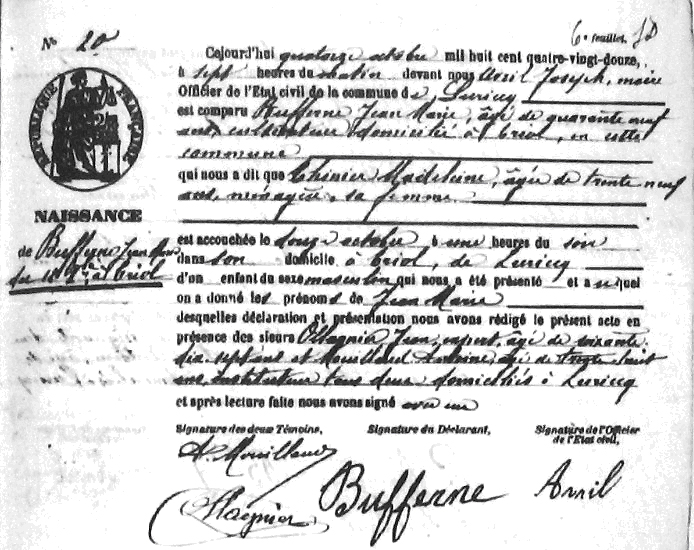 N° 20
6e feuillet
RÉPUBLIQUE FRANÇAISE
NAISSANCE
de Bufferne Jean Marie
du 12 8re à Criol
Cejourd'hui quatorze octobre mil huit cent quatre-vingt-douze,
à sept heures du matin devant nous Avril Joseph, maire
Officier de l'Etat civil de la commune de Luricq
est comparu Bufferne Jean Marie, âgé de quarante neuf
ans, cultivateur domicilié à Criol, en cette
commune
qui nous a dit que Chénier Madeleine, âgée de trente neuf
ans, ménagère, sa femme
est accouchée le douze octobre à une heures du soir
dans son domicile à Criol, de Luricq
d'un enfant du sexe masculin qui nous a été présenté et auquel
on a donné les prénoms de Jean Marie
desquelles déclaration et présentation nous avons rédigé le présent acte en
présence des sieurs Ollagnier Jean, expert, âgé de soixante
dix sept ans et Mouillaud Antoine, âgé de trente huit
ans, instituteur tous deux domiciliés à Luricq
et après lecture faite nous avons signé avec eux
Signature des deux Témoins, Signature du Déclarant, Signature de l'Officier
de l'Etat civil,
A. Mouillaud
Ollagnier Bufferne Avril